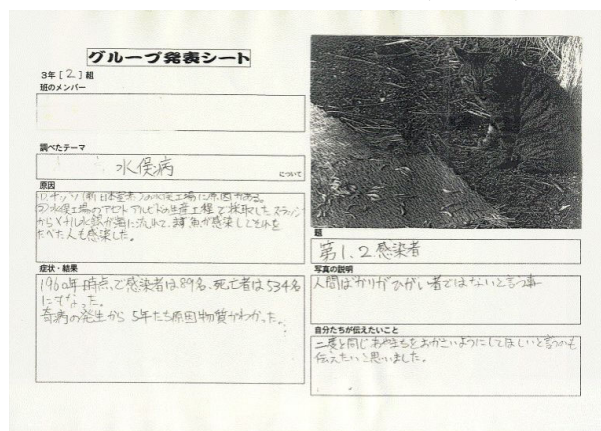 グループ発表シート
3年[2]組
班のメンバー
調べたテーマ
水俣病
について
原因
①チッソ(新日本窒素)の水俣工場に原因がある。
②水俣工場のアセトアルビドの生産工程で
から メチル水銀が海に流れて、魚が感染しそれを
たべた人も感染した。
症状・結果
1960年時点で感染者は89名、死亡者は534名
になった。
奇病の発生から 5年たち原因物質がわかった。
題
第1、2感染者
写真の説明
人間ばかりがひがい者ではないと言う事
自分たちが伝えたいこと
二度と同じあやまちをおかさいようにしてほしいと言うのを
伝えたいと思いました。